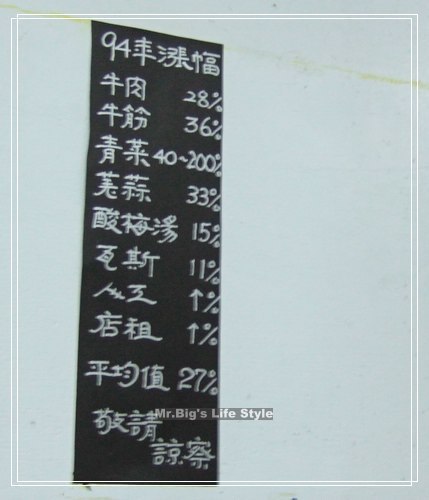 94年漲幅
牛肉 28%
牛筋 36%
青菜 40~200%
羌蒜 33%
酸梅湯 15%
瓦斯 11%
人工 ↑%
店租 ↑%
平均值 27%
敬請
諒察
Mr.Big's Life Style